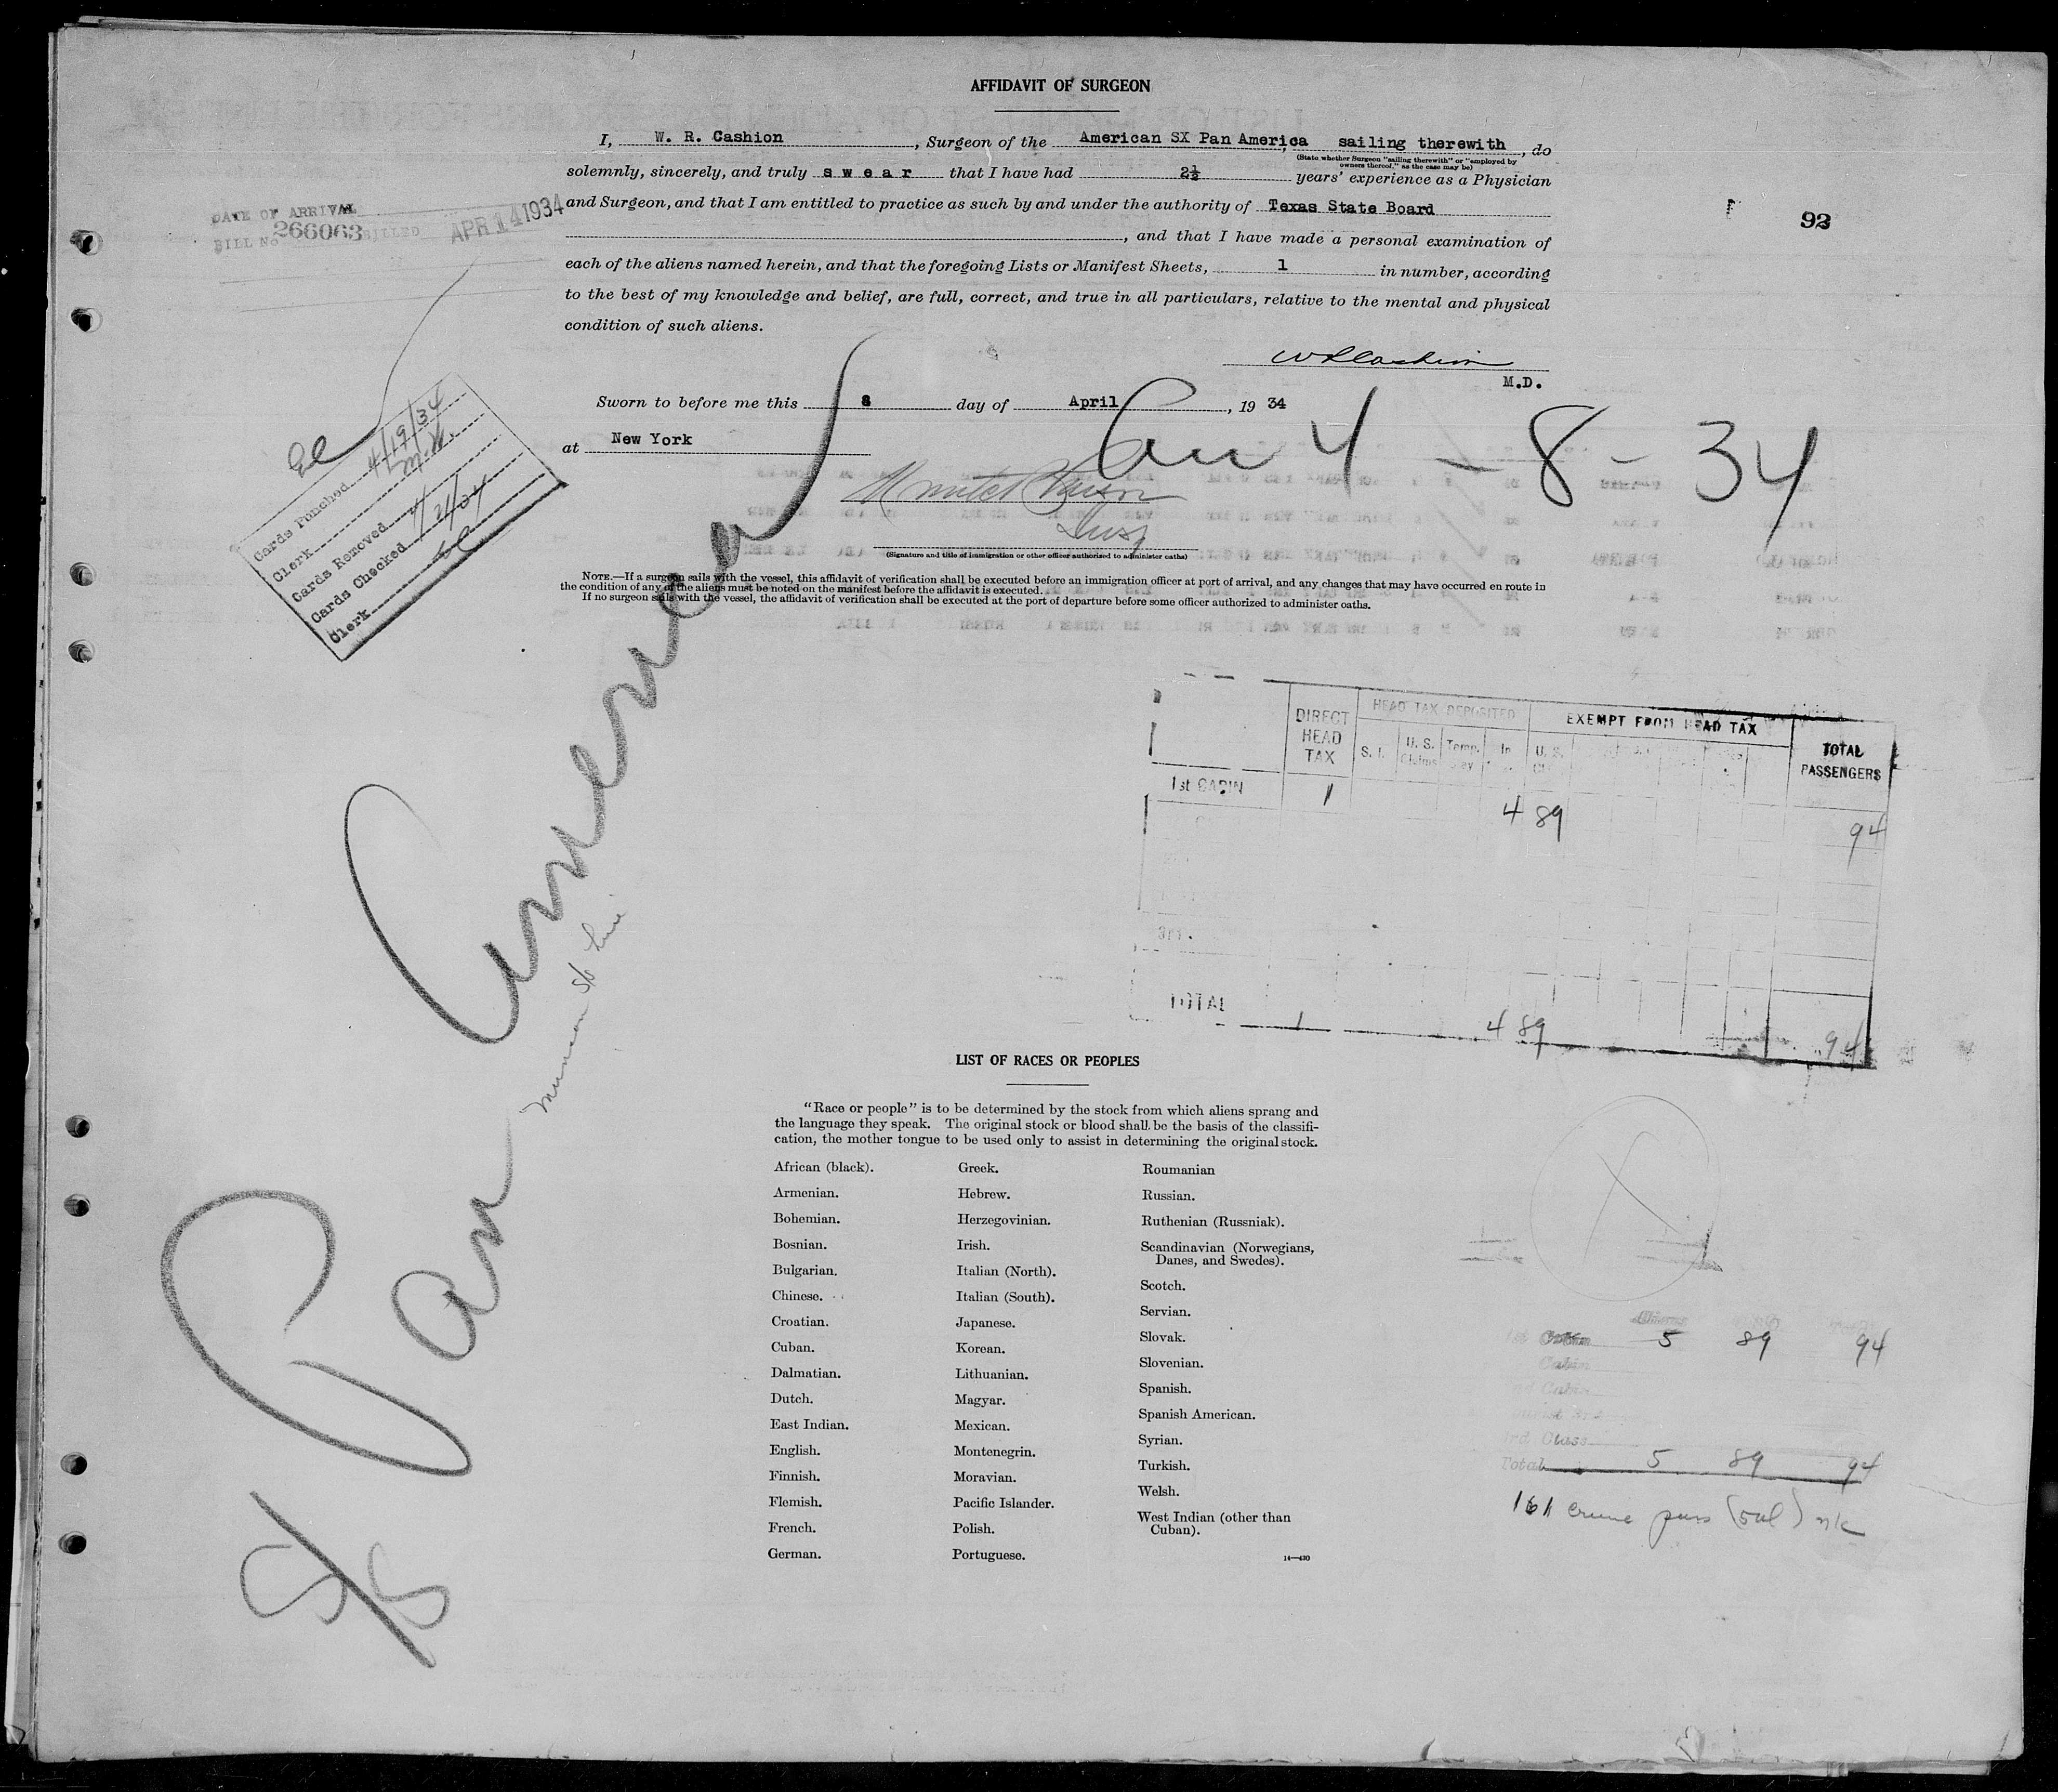 AFFIDAVIT OF SURGEON
I, W. R. Cashion, Surgeon of the American SX Pan America, sailing therewith, do
(State whether Surgeon "sailing therewith" or "employed by owners thereof," as the case may be)
solemnly, sincerely, and truly swear that I have had 2½ years' experience as a Physician
and Surgeon, and that I am entitled to practice as such by and under the authority of Texas State Board
, and that I have made a personal examination of
each of the aliens named herein, and that the foregoing Lists or Manifest Sheets, 1 in number, according
to the best of my knowledge and belief, are full, correct, and true in all particulars, relative to the mental and physical
condition of such aliens.
DATE OF ARRIVAL
BILL No 266063 BILLED APR 14 1934
93
WRCashion
M.D.
Sworn to before me this 8 day of April, 1934
at New York
Arr 4 - 8 - 34
Insp
(Signature and title of immigration or other officer authorized to administer oaths)
NOTE.—If a surgeon sails with the vessel, this affidavit of verification shall be executed before an immigration officer at port of arrival, and any changes that may have occurred en route in
the condition of any of the aliens must be noted on the manifest before the affidavit is executed.
If no surgeon sails with the vessel, the affidavit of verification shall be executed at the port of departure before some officer authorized to administer oaths.
Cards Punched 4/19/34
Clerk M.H.
Cards Removed
Cards Checked 4/21/34
Clerk
S/S Pan America
Munson S/S Line
DIRECT HEAD TAX
HEAD TAX DEPOSITED
EXEMPT FROM HEAD TAX
TOTAL PASSENGERS
S. I.
U. S. Claims
Temp.
In
U. S.
1st CABIN 1 4 89 94
3rd.
TOTAL 1 4 89 94
LIST OF RACES OR PEOPLES
"Race or people" is to be determined by the stock from which aliens sprang and
the language they speak. The original stock or blood shall be the basis of the classifi-
cation, the mother tongue to be used only to assist in determining the original stock.
African (black).
Armenian.
Bohemian.
Bosnian.
Bulgarian.
Chinese.
Croatian.
Cuban.
Dalmatian.
Dutch.
East Indian.
English.
Finnish.
Flemish.
French.
German.
Greek.
Hebrew.
Herzegovinian.
Irish.
Italian (North).
Italian (South).
Japanese.
Korean.
Lithuanian.
Magyar.
Mexican.
Montenegrin.
Moravian.
Pacific Islander.
Polish.
Portuguese.
Roumanian
Russian.
Ruthenian (Russniak).
Scandinavian (Norwegians,
Danes, and Swedes).
Scotch.
Servian.
Slovak.
Slovenian.
Spanish.
Spanish American.
Syrian.
Turkish.
Welsh.
West Indian (other than
Cuban).
14—430
5 89 94
Cabin
Cabin
3rd Class
Total 5 89 94
161